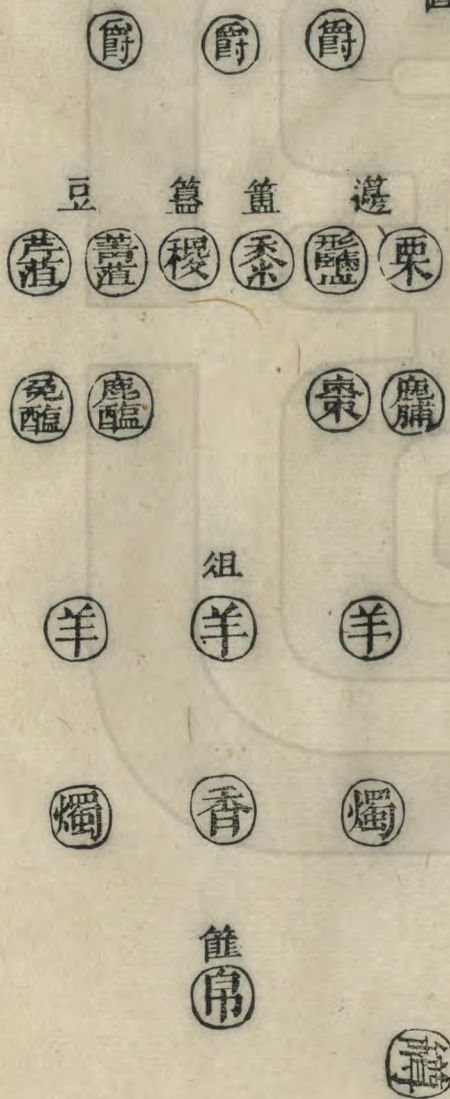 爵 爵 爵
豆 簋 簠 籩
芹菹 菁菹 稷 黍 形鹽 栗
兔醢 鹿醢 棗 鹿脯
俎
羊 羊 羊
燭 香 燭
篚
帛